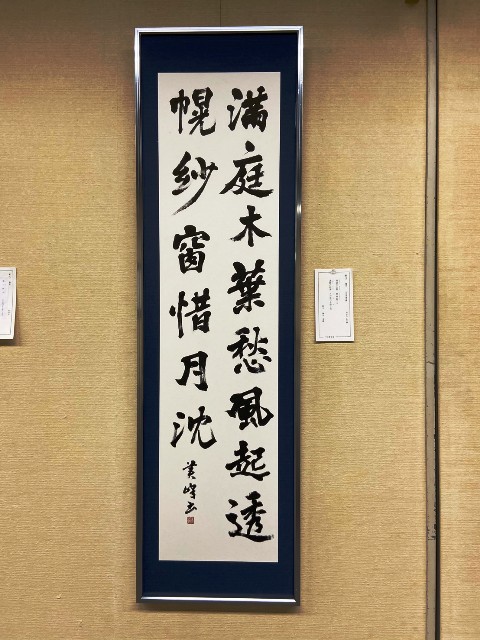 満庭木葉愁風起透
幌紗窗惜月沈